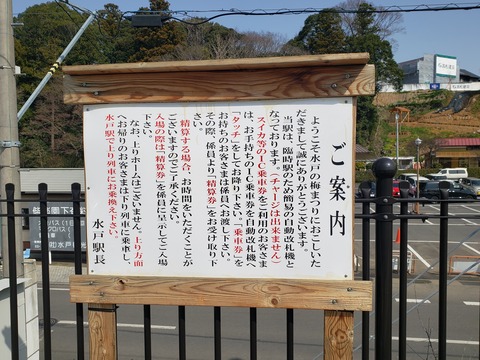 ご案内
ようこそ水戸の梅まつりにおこしいた
だきまして誠にありがとうございます。
当駅は、臨時駅のため簡易の自動改札機と
なっております。(チャージは出来ません)
スイカ等のIC乗車券をご利用のお客さま
は、お手持ちのIC乗車券を自動改札機へ
「タッチ」をしてお降り下さい。「乗車券」を
お持ちのお客さまは係員へお渡し下さい。
その際、係員より「精算券」をお受け取り下
さい。
精算する場合、お時間をいただくことが
ございますのでご了承ください。
入場の際は「精算券」を係員に呈示してご入場
下さい。
なお、上りホームはございません。上り方面
へお帰りのお客さまは下り列車に乗車し、
水戸駅で上り列車にお乗換え下さい。
水戸駅長